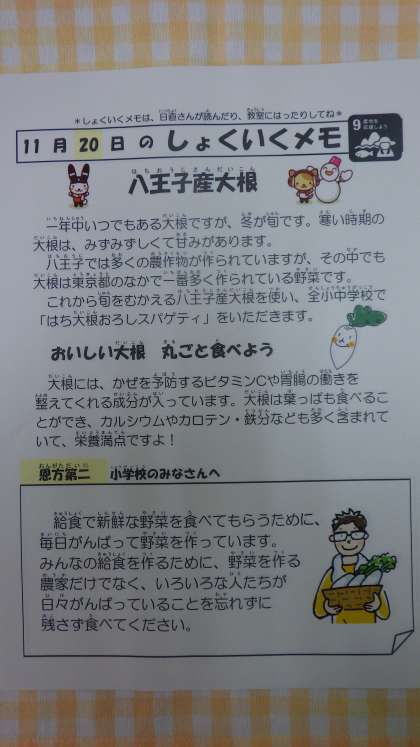 ＊しょくいくメモは、日直さんが読んだり、教室にはったりしてね＊
11月20日のしょくいくメモ
八王子産大根
一年中いつでもある大根ですが、冬が旬です。寒い時期の
大根は、みずみずしくて甘みがあります。
八王子では多くの農作物が作られていますが、その中でも
大根は東京都のなかで一番多く作られている野菜です。
これから旬をむかえる八王子産大根を使い、全小中学校で
「はち大根おろしスパゲティ」をいただきます。
おいしい大根　丸ごと食べよう
大根には、かぜを予防するビタミンCや胃腸の働きを
整えてくれる成分が入っています。大根は葉っぱも食べるこ
とができ、カルシウムやカロテン・鉄分なども多く含まれて
いて、栄養満点ですよ！
恩方第二　小学校のみなさんへ
給食で新鮮な野菜を食べてもらうために、
毎日がんばって野菜を作っています。
みんなの給食を作るために、野菜を作る
農家だけでなく、いろいろな人たちが
日々がんばっていることを忘れずに
残さず食べてください。